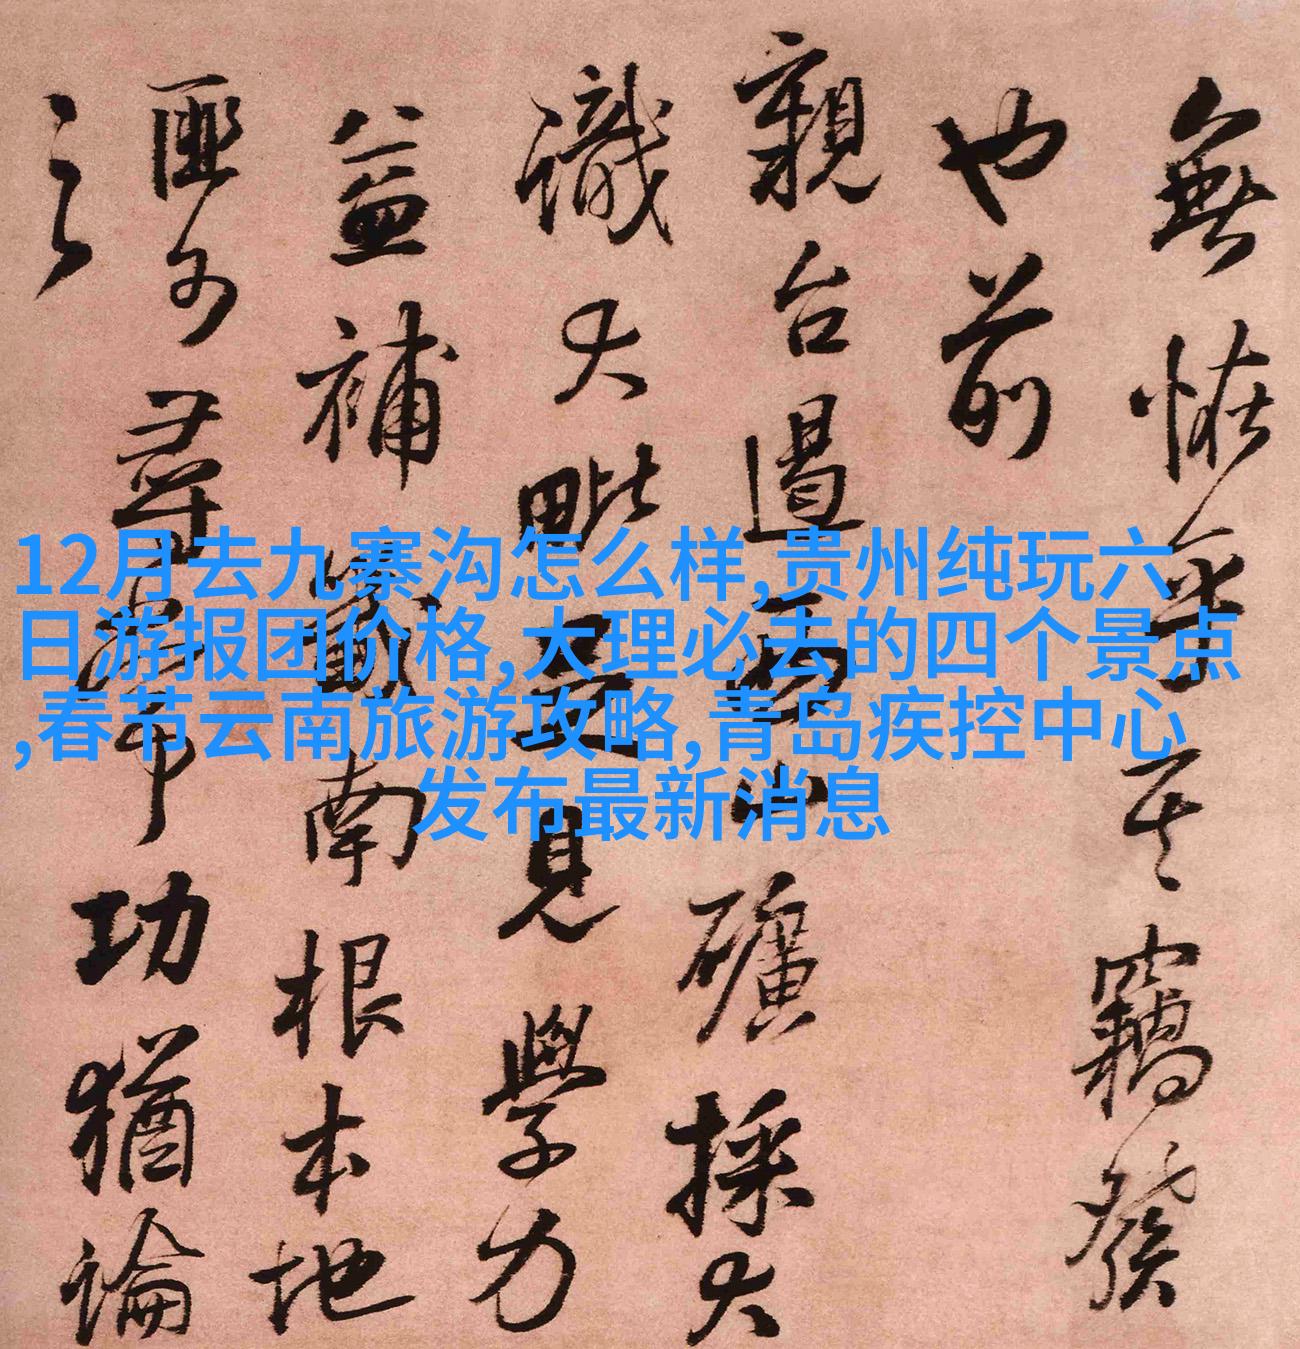 12月去九寨沟怎么样,贵州纯玩六
日游报团价格,大理必去的四个景点
,春节云南旅游攻略,青岛疾控中心
发布最新消息
無恠乎其竊發
也前
親台遏西山礦採大
識大毗足見學力
益補南根本地
匪尋常功猶論
之